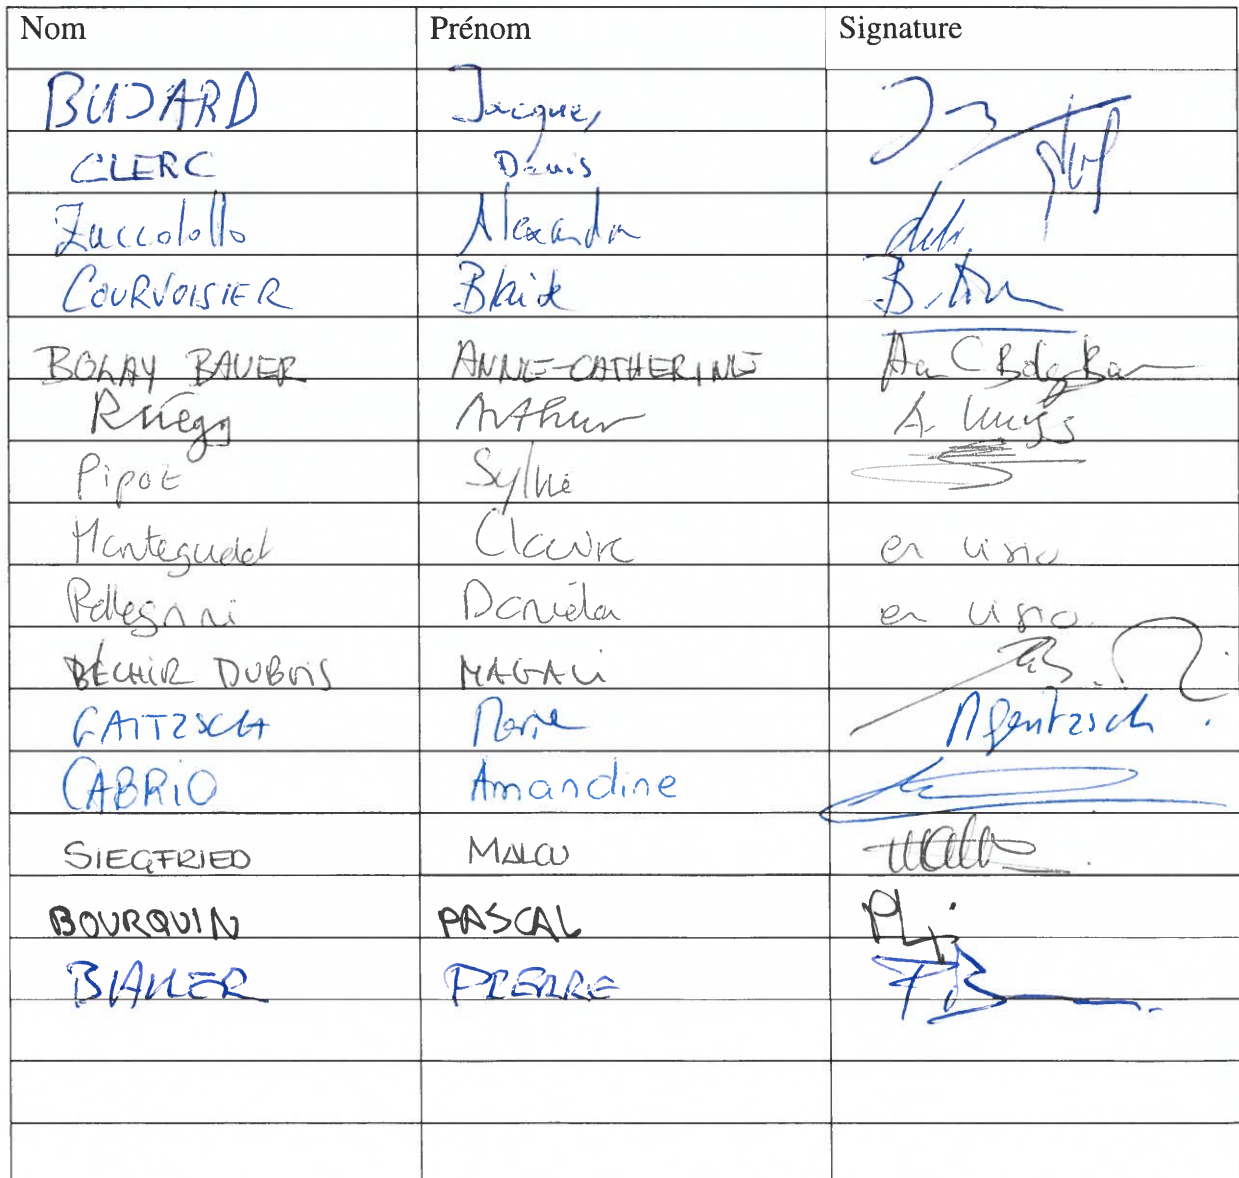 Nom Prénom Signature
BUJARD Jacques
CLERC Denis
Zuccolotto Alexandra
COURVOISIER Blaise
BOLAY BAUER ANNE-CATHERINE
Rüegg Arthur
Pipoz Sylvie
Montegudet Claire en visio
Pellegrini Daniela en visio
BÉCHIR DUBOIS MAGALI
GAITZSCH Marie
CABRIO Amandine
SIEGFRIED MALOU
BOURQUIN PASCAL
PIERRE